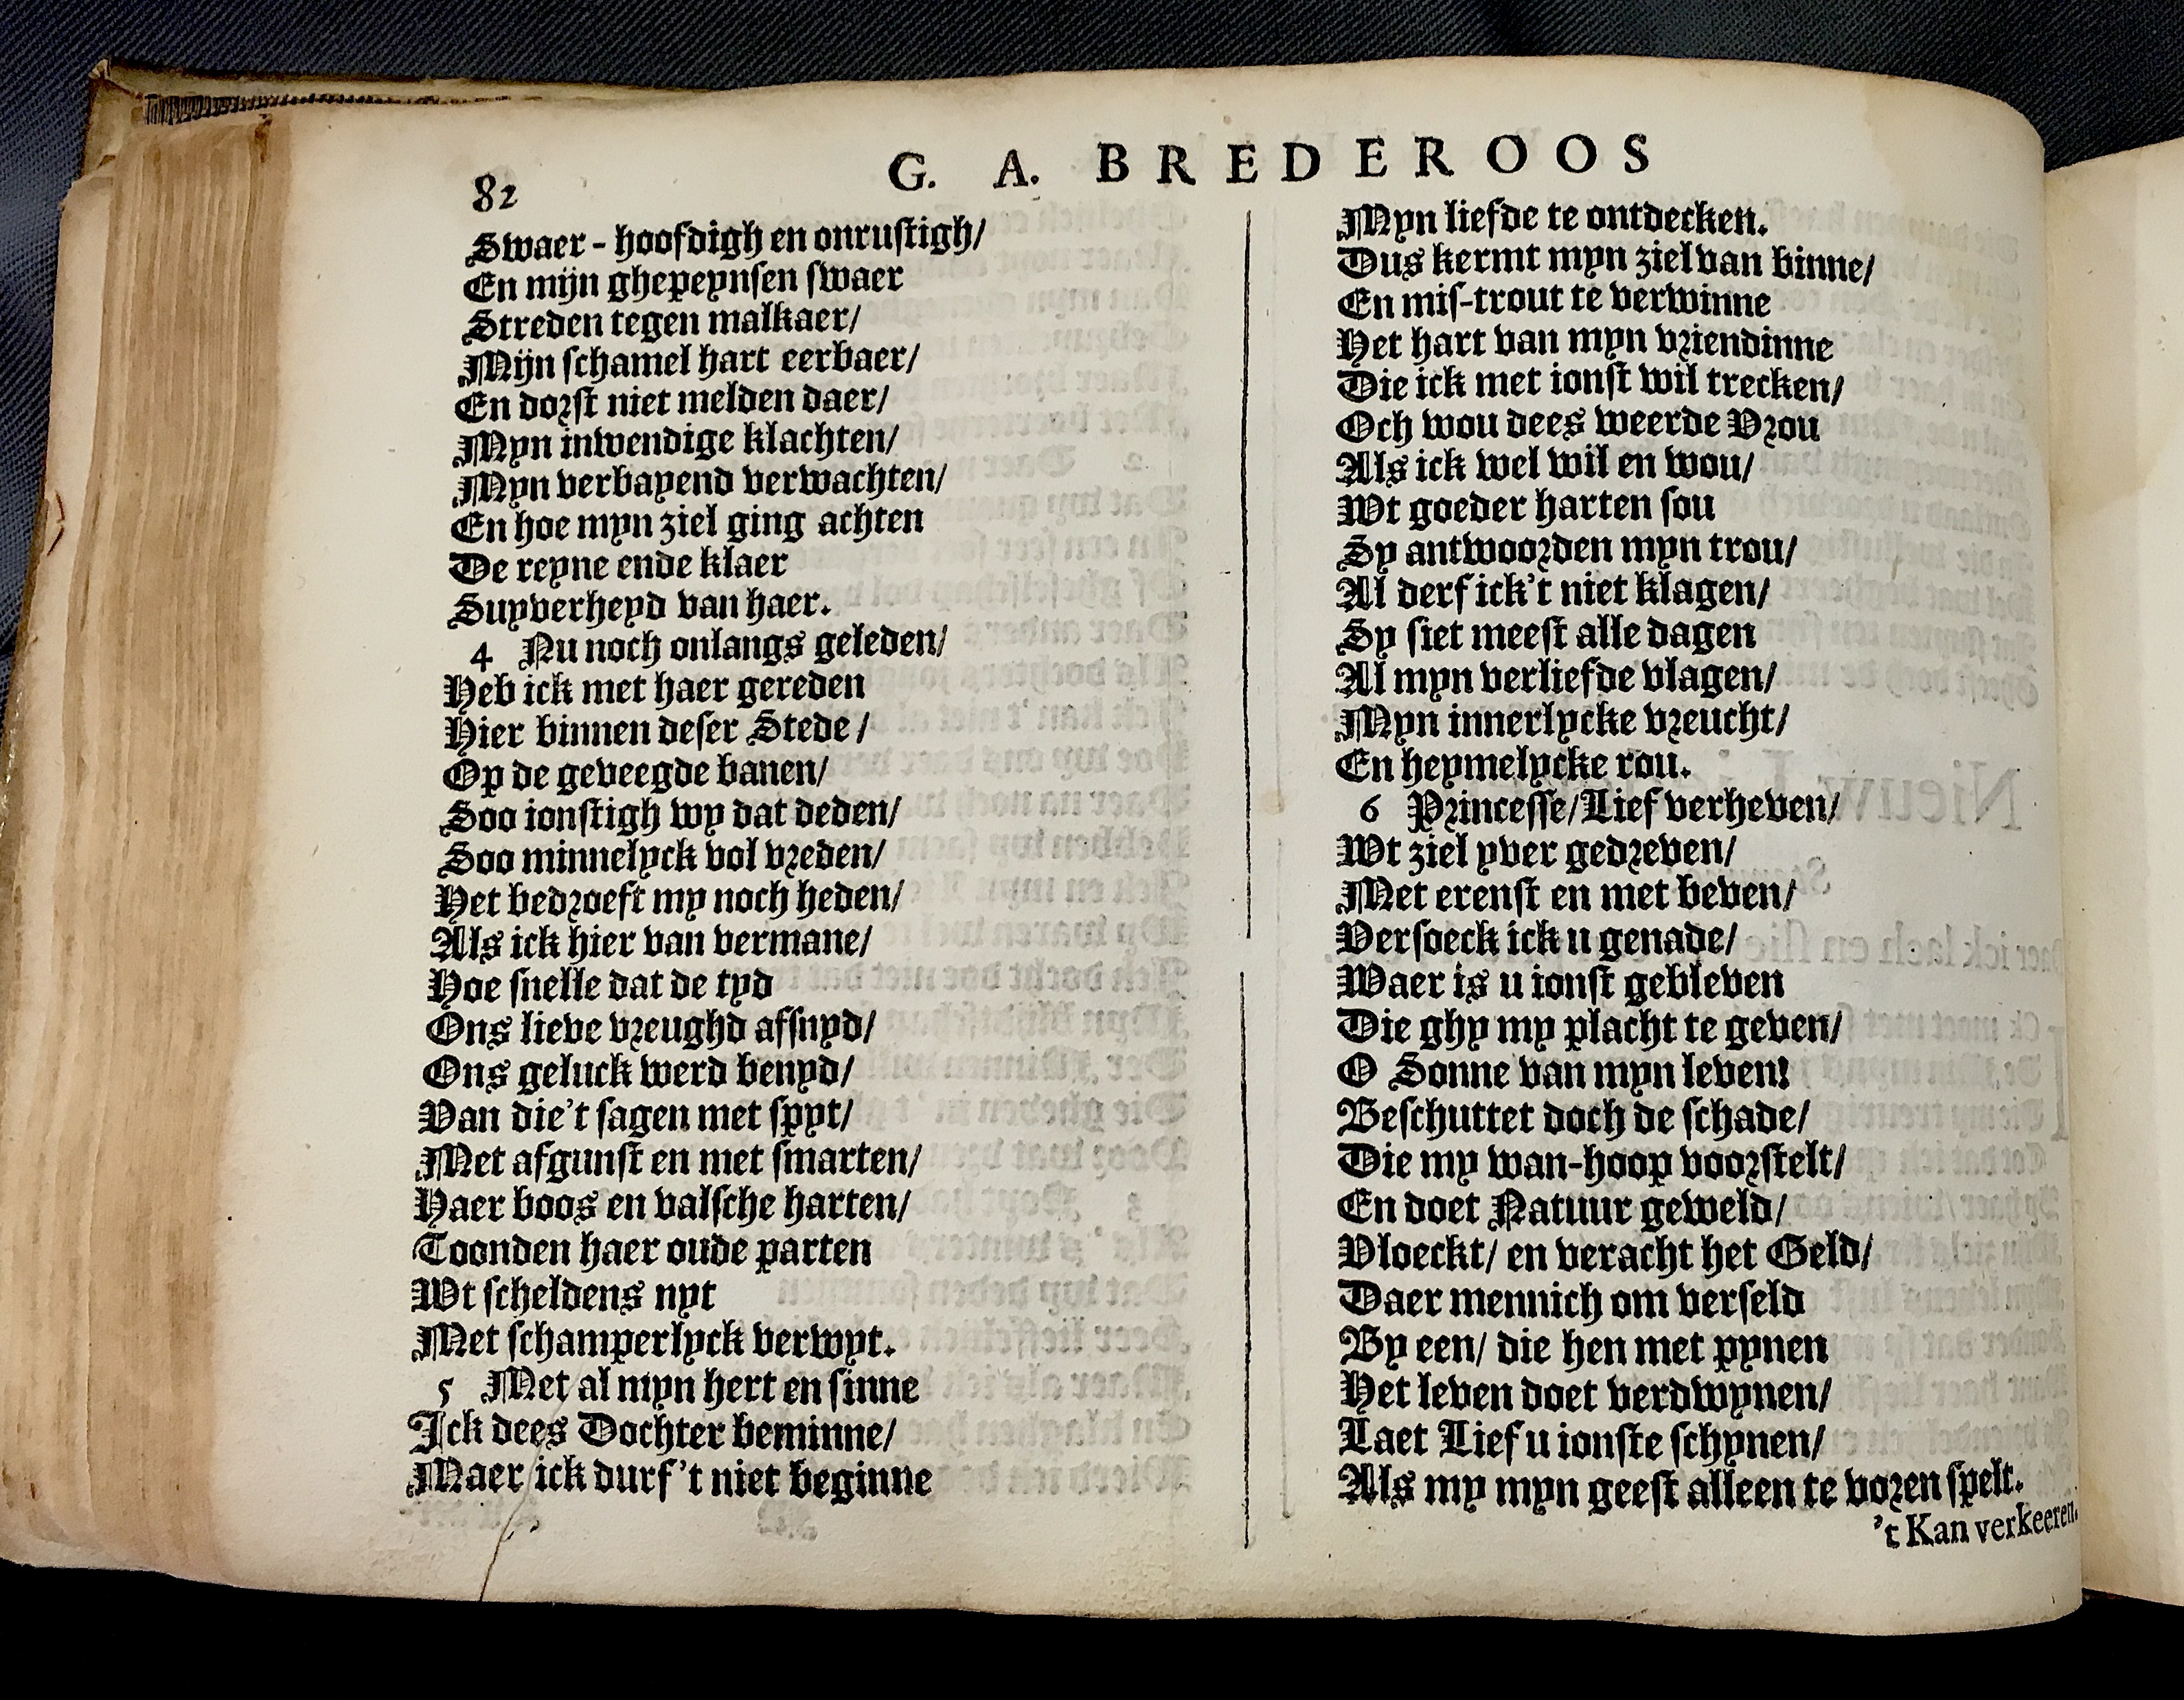 82
G. A. BREDEROOS
Swaer-hoofdigh en onrustigh/
En mijn ghepeynsen swaer
Streden tegen malkaer/
Mijn schamel hart eerbaer/
En dorst niet melden daer/
Myn inwendige klachten/
Myn verbayend verwachten/
En hoe myn ziel ging achten
De reyne ende klaer
Suyverheyd van haer.
4 Nu noch onlangs geleden/
Heb ick met haer gereden
Hier binnen deser Stede/
Op de geveegde banen/
Soo ionstigh wy dat deden/
Soo minnelyck vol vreden/
Het bedroeft my noch heden/
Als ick hier van vermane/
Hoe snelle dat de tyd
Ons lieve vreughd afsnyd/
Ons geluck werd benyd/
Van die't sagen met spyt/
Met afgunst en met smarten/
Haer boos en valsche harten/
Toonden haer oude parten
Wt scheldens nyt
Met schamperlyck verwyt.
5 Met al myn hert en sinne
Ick dees Dochter beminne/
Maer ick durf't niet beginne
Myn liefde te ontdecken.
Dus kermt myn ziel van binne/
En mis-trout te verwinne
Het hart van myn vriendinne
Die ick met ionst wil trecken/
Och wou dees weerde Vrou
Als ick wel wil en wou/
Wt goeder harten sou
Sy antwoorden myn trou/
Al derf ick't niet klagen/
Sy siet meest alle dagen
Al myn verliefde vlagen/
Myn innerlycke vreucht/
En heymelycke rou.
6 Princesse/Lief verheven/
Wt ziel yver gedreven/
Met erenst en met beven/
Versoeck ick u genade/
Waer is u ionst gebleven
Die ghy my placht te geven/
O Sonne van myn leven!
Beschuttet doch de schade/
Die my wan-hoop voorstelt/
En doet Natuur geweld/
Vloeckt/ en veracht het Geld/
Daer mennich om verseld
By een/ die hen met pynen
Het leven doet verdwynen/
Laet Lief u ionste schynen/
Als my myn geest alleen te voren spelt.
't Kan verkeeren.